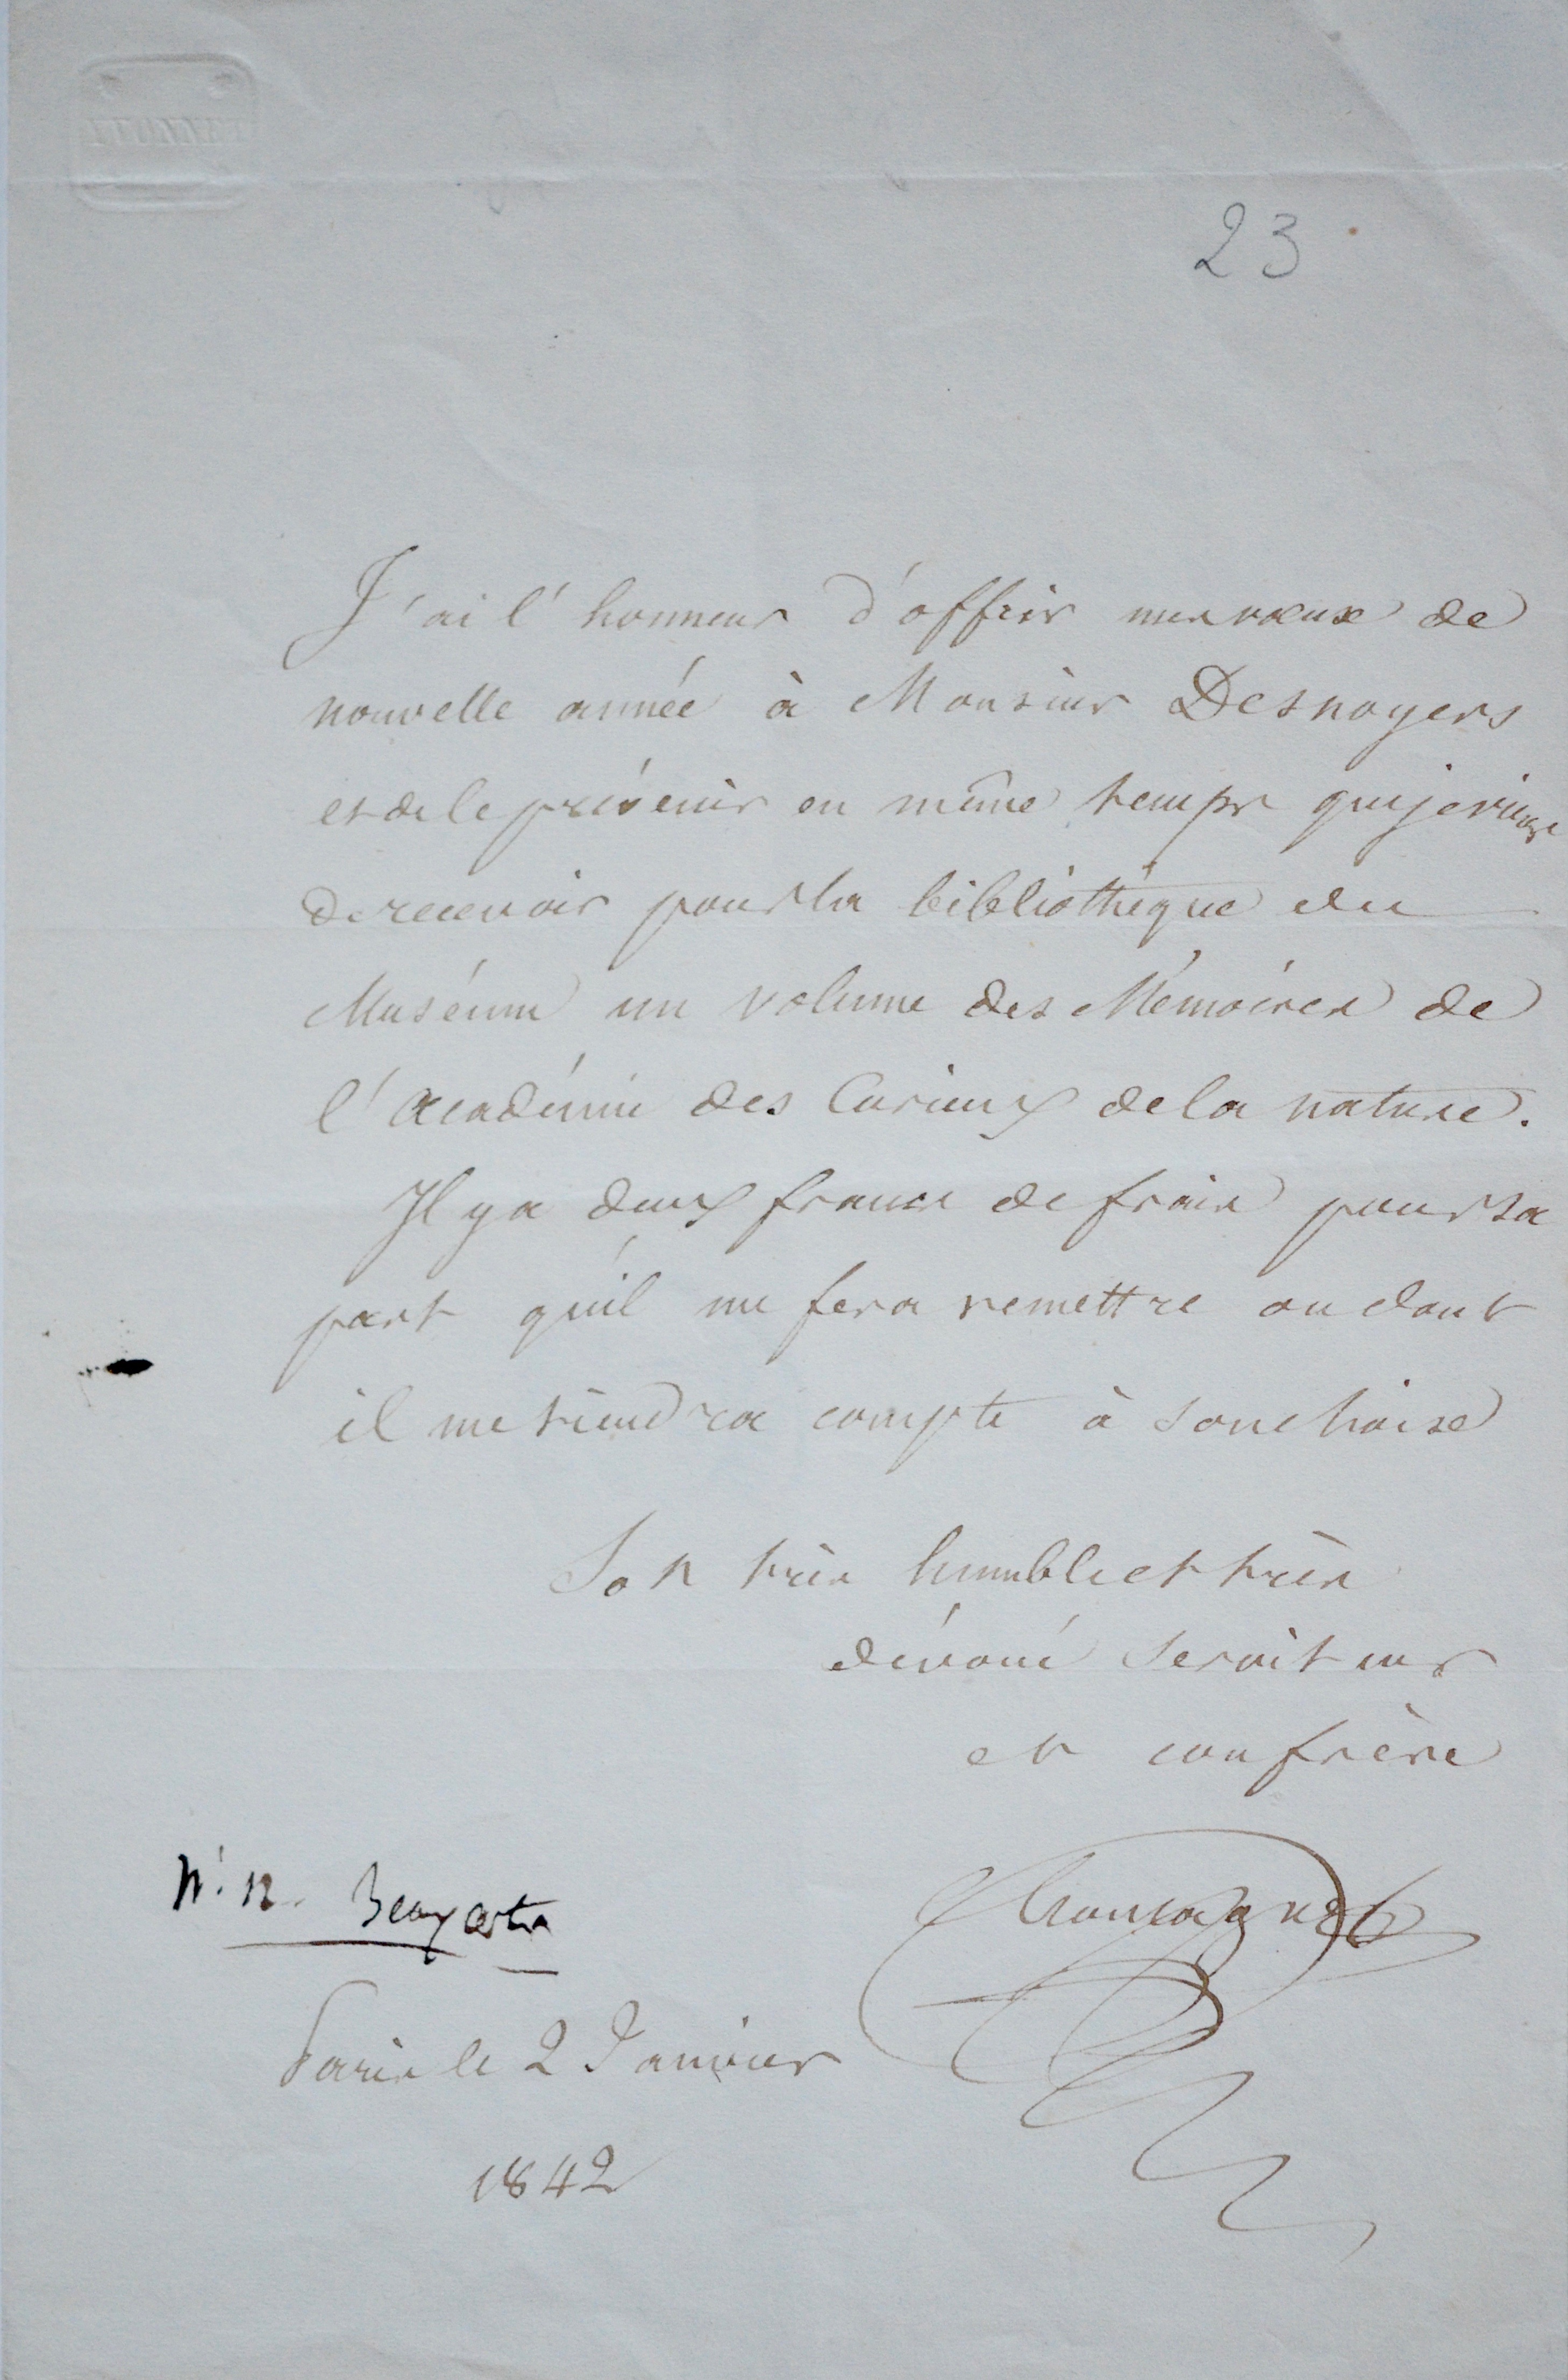 23
J'ai l'honneur d'offrir mes vœux de
nouvelle année à Monsieur Desnoyers
et de le prévenir en même temps que je viens
de recevoir pour la bibliothèque du
Muséum un volume des Mémoires de
l'académie des Curieux de la nature.
Il y a deux francs de frais pour sa
part qu'il me fera remettre ou dont
il me tiendra compte à son choise
Son très humble et très
dévoué serviteur
et confrère
Paris le 2 Janvier
1842